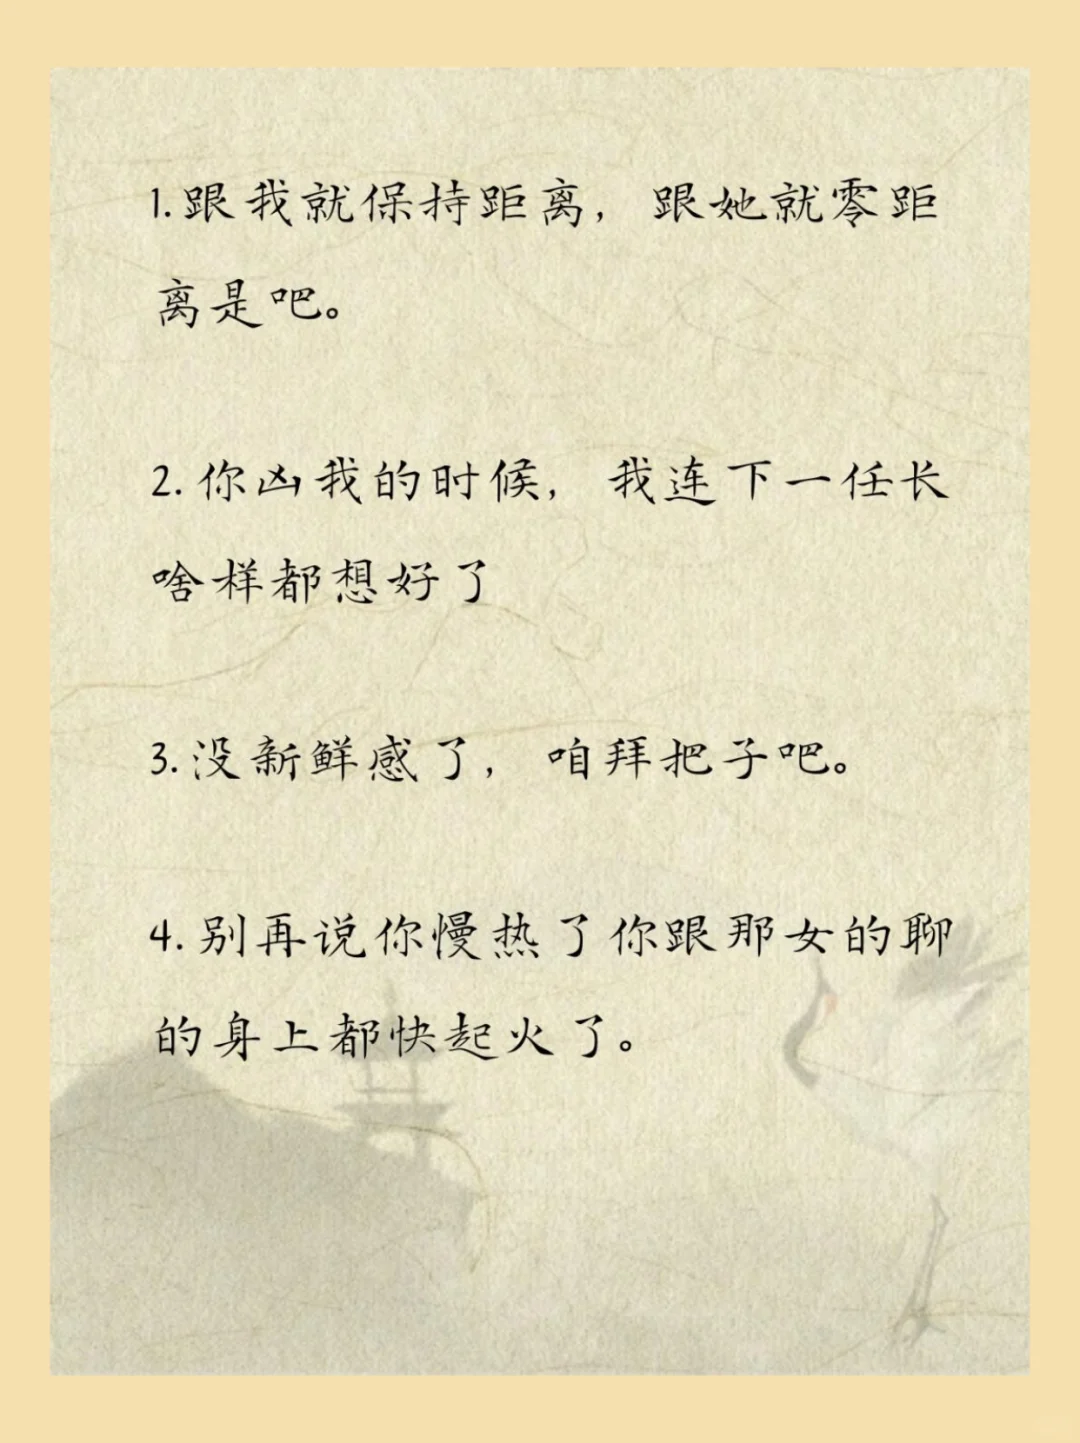 1.跟我就保持距离，跟她就零距
离是吧。
2.你凶我的时候，我连下一任长
啥样都想好了
3.没新鲜感了，咱拜把子吧。
4.别再说你慢热了你跟那女的聊
的身上都快起火了。